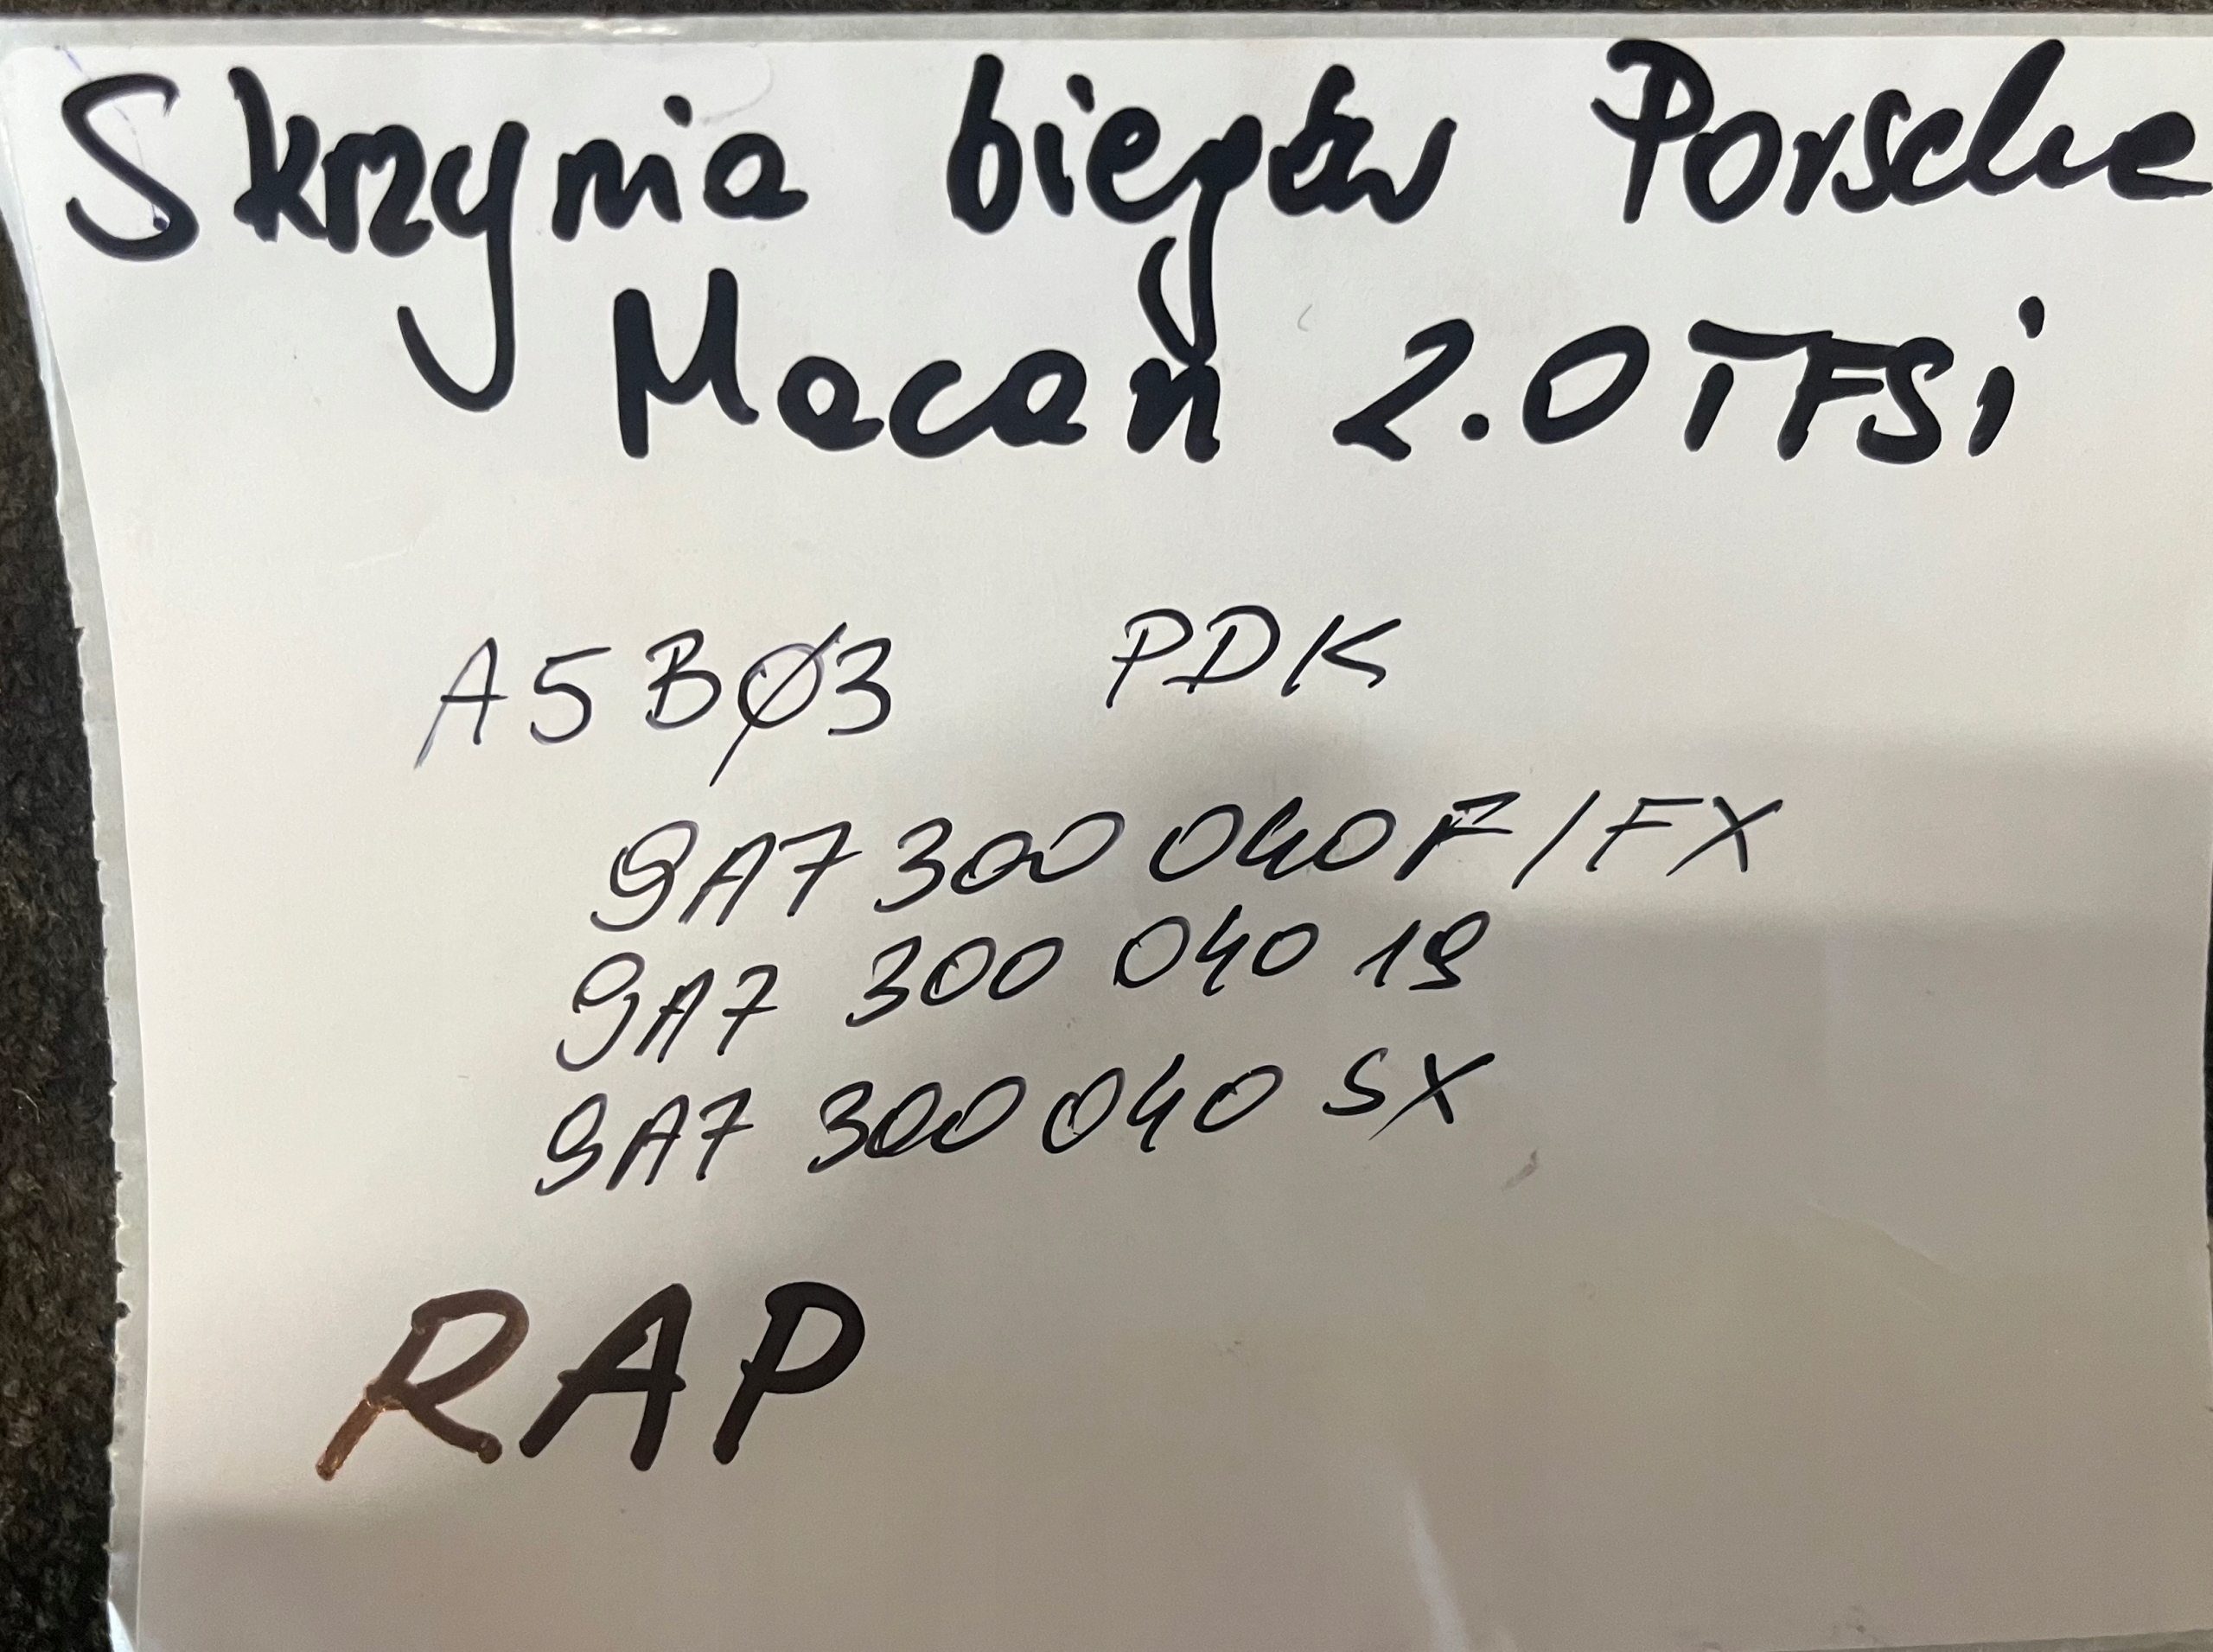 Skrzynia biegów Porsche
Macan 2.0 TFSi
A5BØ3 PDK
9A7 300 040F/FX
9A7 300 040 19
9A7 300 040 SX
RAP